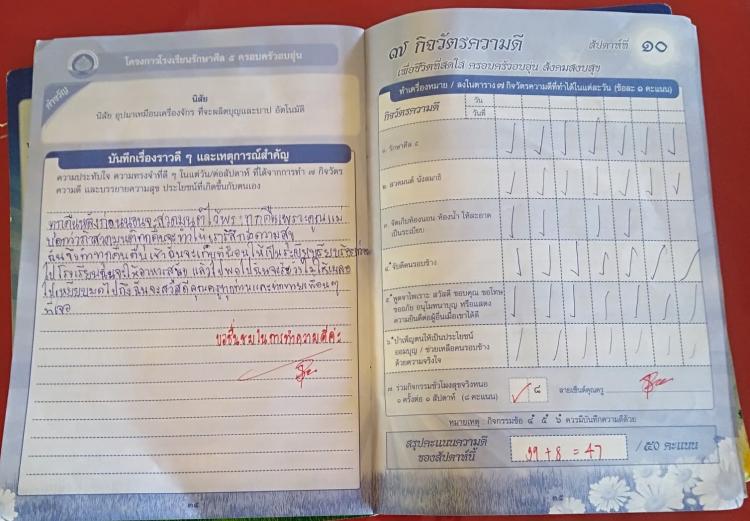 โครงการโรงเรียนรักษาศีล ๕ ครอบครัวอบอุ่น
คำขวัญ
นิสัย
นิสัย อุปมาเหมือนเครื่องจักร ที่จะผลิตบุญและบาป อัตโนมัติ
บันทึกเรื่องราวดี ๆ และเหตุการณ์สำคัญ
ความประทับใจ ความทรงจำที่ดี ๆ ในแต่วัน/ต่อสัปดาห์ ที่ได้จากการทำ ๗ กิจวัตร
ความดี และบรรยายความสุข ประโยชน์ที่เกิดขึ้นกับตนเอง
ทุกคืนหลังก่อนนอนจะสวดมนต์ไหว้พระทุกคืนเพราะคุณแม่
บอกว่าถ้าสวดมนต์ทุกคืนจะทำให้เรารู้สึกมีความสุข
ไปโรงเรียนฉันจะ
ไปเหยียบมดไปถึงฉันจะสวัสดีคุณครูทุกท่านและทักทายเพื่อนๆ
ที่เจอ
ขอชื่นชมในการทำความดีค่ะ
๓๔
๗ กิจวัตรความดี
สัปดาห์ที่ ๑๐
เพื่อชีวิตที่สดใส ครอบครัวอบอุ่น สังคมสงบสุข
ทำเครื่องหมาย / ลงในตาราง ๗ กิจวัตรความดีที่ทำได้ในแต่ละวัน (ข้อละ ๑ คะแนน)
กิจวัตรความดี
วัน
วันที่
๑. รักษาศีล ๕
๒. สวดมนต์ นั่งสมาธิ
๓. จัดเก็บห้องนอน ห้องน้ำ ให้สะอาด
เป็นระเบียบ
๔. จับดีคนรอบข้าง
๕. พูดจาไพเราะ สวัสดี ขอบคุณ ขอโทษ
ขออภัย อนุโมทนาบุญ หรือแสดง
ความยินดีต่อผู้อื่นเมื่อเขาได้ดี
๖. บำเพ็ญตนให้เป็นประโยชน์
ออมบุญ / ช่วยเหลือคนรอบข้าง
ด้วยความจริงใจ
๗. ร่วมกิจกรรมชั่วโมงสุขจริงหนอ
๑ ครั้งต่อ ๑ สัปดาห์ (๘ คะแนน)
๘
ลายเซ็นต์คุณครู
หมายเหตุ : กิจกรรมข้อ ๔ ๕ ๖ ควรมีบันทึกความดีด้วย
สรุปคะแนนความดี
ของสัปดาห์นี้
39 + 8 = 47
/ ๕๐ คะแนน
๓๕